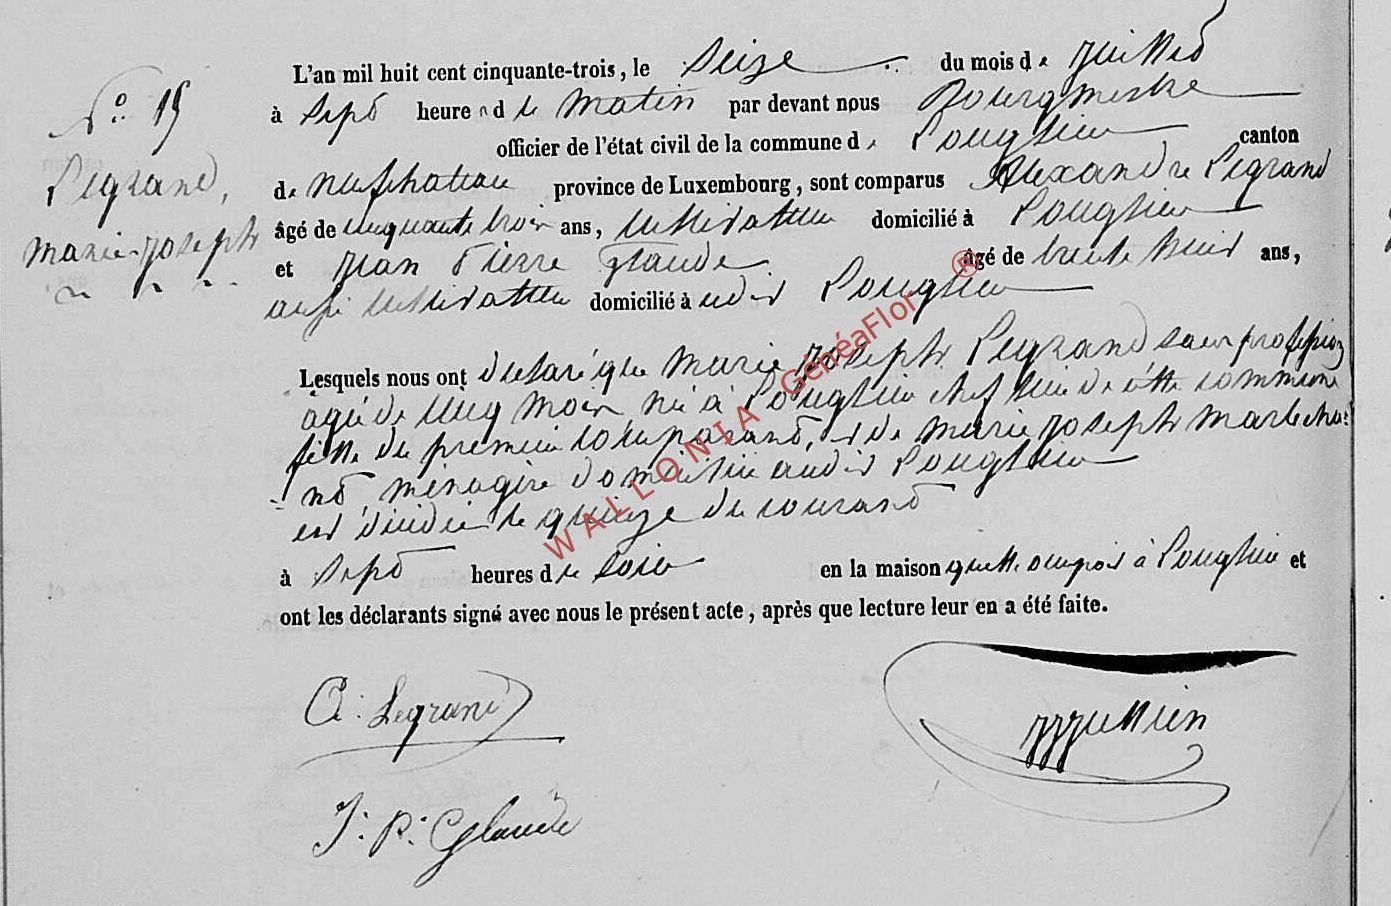 L'an mil huit cent cinquante-trois, le Seize du mois de juillet
à Sept heures du Matin par devant nous Bourgmestre
officier de l'état civil de la commune de Longlier canton
de neufchateau province de Luxembourg, sont comparus Alexandre Legrand
âgé de cinquante trois ans, cultivateur domicilié à Longlier
et jean Pierre Glaude âgé de trente huit ans,
aussi cultivateur domicilié à udit Longlier
N° 15
Legrand,
marie-joseph
Lesquels nous ont declaré que Marie joseph Legrand sans profession
agée de cinq mois née à Longlier chef lieu de cette commune
fille du premier comparant, et de marie joseph marlecha:
nt ménagère domiciliée audit Longlier
est décédée le quinze du courant
à Sept heures du soir en la maison quelle occupoit à Longlier et
ont les déclarants signé avec nous le présent acte, après que lecture leur en a été faite.
A. Legrand
J: P: Glaude
WALLONIA GénéaFlor ®